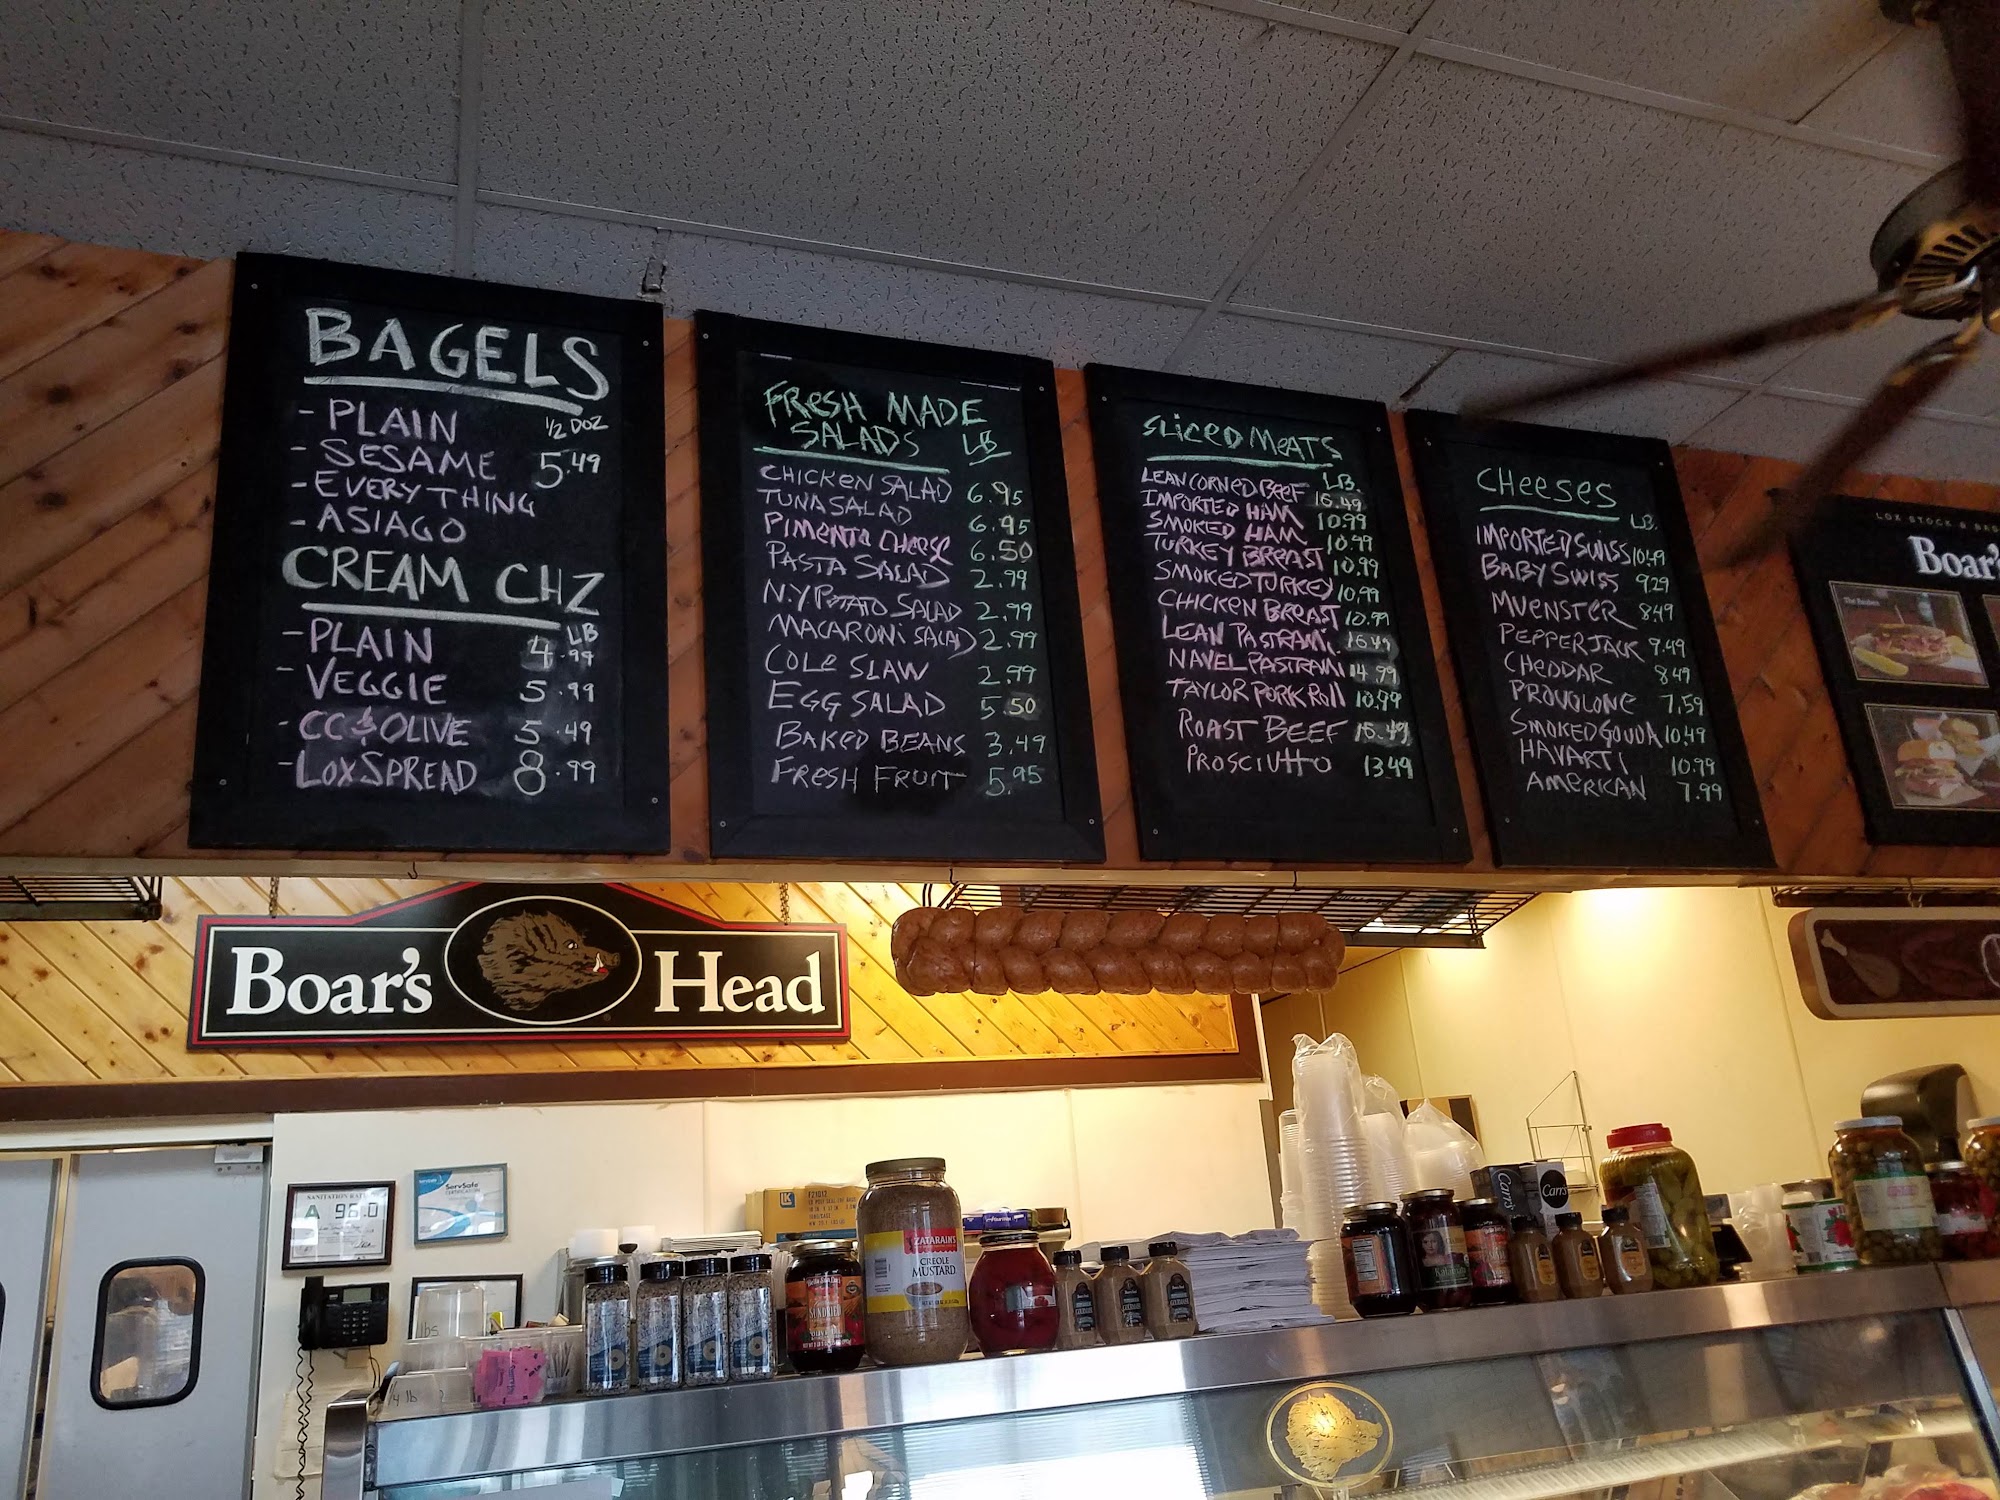 BAGELS
- PLAIN 1/2 DOZ
- SESAME 5.49
- EVERYTHING
- ASIAGO
CREAM CHZ
LB
- PLAIN 4.99
- VEGGIE 5.99
- CC & OLIVE 5.49
- LOX SPREAD 8.99
FRESH MADE
SALADS LB
CHICKEN SALAD 6.95
TUNA SALAD 6.95
PIMENTO CHEESE 6.50
PASTA SALAD 2.99
N.Y. POTATO SALAD 2.99
MACARONI SALAD 2.99
COLE SLAW 2.99
EGG SALAD 5.50
BAKED BEANS 3.49
FRESH FRUIT 5.95
SLICED MEATS
LB.
LEAN CORNED BEEF 15.49
IMPORTED HAM 10.99
SMOKED HAM 10.99
TURKEY BREAST 10.99
SMOKED TURKEY 10.99
CHICKEN BREAST 10.99
LEAN PASTRAMI 15.49
NAVEL PASTRAMI 14.99
TAYLOR PORK ROll 10.99
ROAST BEEF 15.49
PROSCIUTTO 13.49
CHEESES
LB.
IMPORTED SWISS 10.49
BABY SWISS 9.29
MUENSTER 8.49
PEPPER JACK 9.49
CHEDDAR 8.49
PROVOLONE 7.59
SMOKED GOUDA 10.49
HAVARTI 10.99
AMERICAN 7.99
LOX STOCK &
Boar's
Boar's Head
SANITATION
A 96.0
ServSafe
CERTIFICATION
ZATARAIN'S
CREOLE
MUSTARD
Carr's
Carr's
lbs
1/4 lb